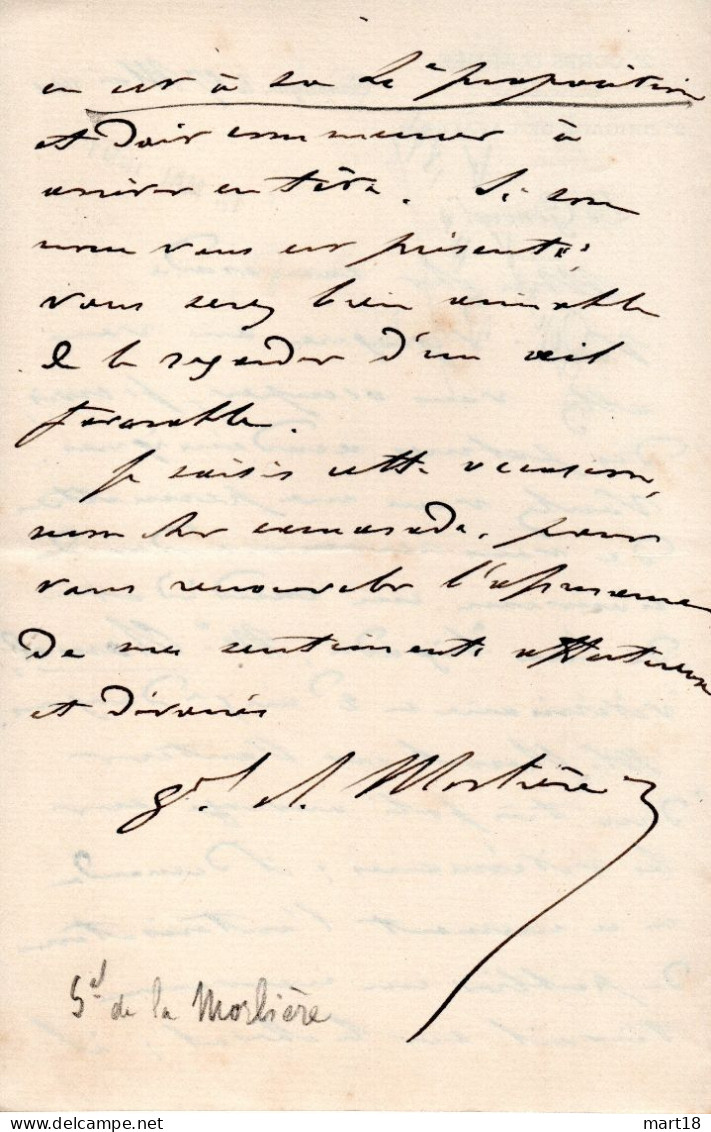 en est à sa 2e proposition
et doit commencer à
arriver en tête. Si son
nom vous est présenté
vous serez bien aimable
de le regarder d'un œil
favorable.
Je saisis cette occasion,
mon cher camarade, pour
vous renouveler l'assurance
de mes sentiments affectueux
et dévoués
Gal de la Morlière
mart18